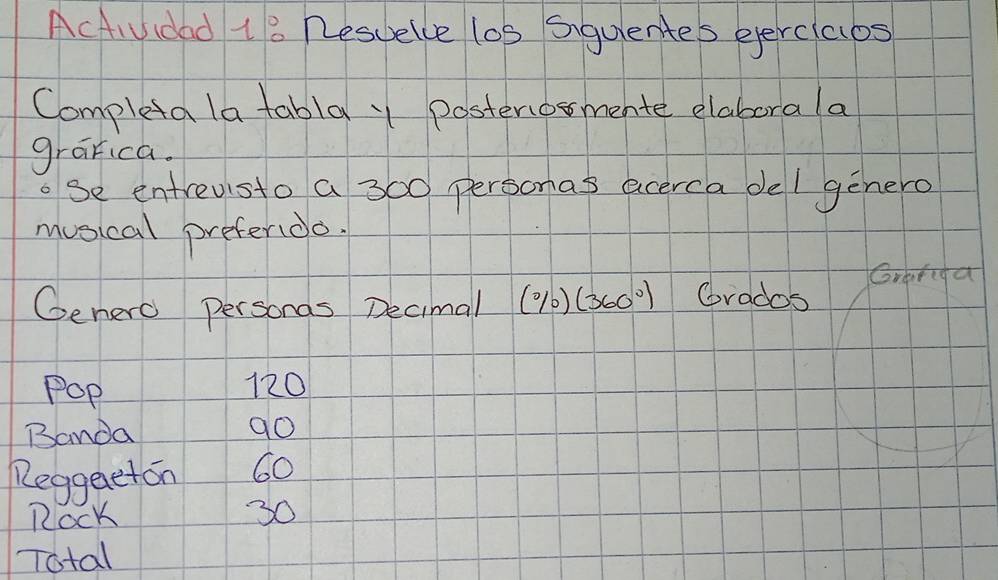 Actividad 1: Resuelve los Siguientes ejercicios
Completa la tabla y posteriormente elabora la
gráfica.
• Se entrevisto a 300 personas acerca del género
musical preferido.
Grafica
Genero Personas Decimal (%) (360°) Grados
Pop 120
Banda 90
Reggaetón 60
Rock 30
Total